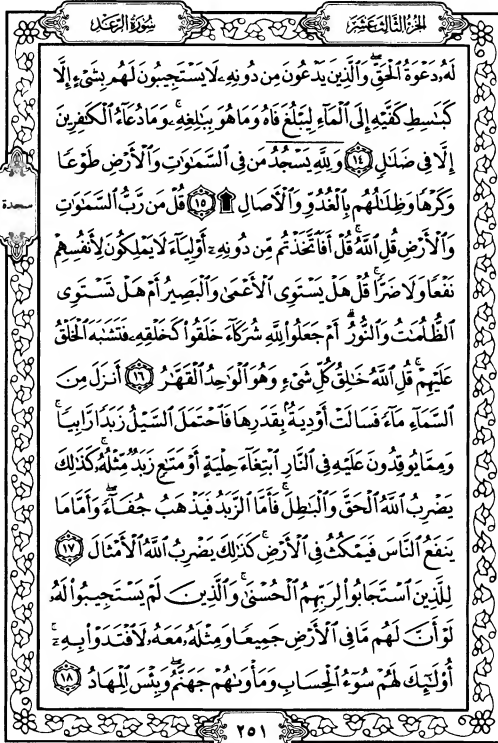 سورة الرعد
الجزء الثالث عشر
لَهُۥ دَعْوَةُ ٱلْحَقِّ ۖ وَٱلَّذِينَ يَدْعُونَ مِن دُونِهِۦ لَا يَسْتَجِيبُونَ لَهُم بِشَىْءٍ إِلَّا
كَبَـٰسِطِ كَفَّيْهِ إِلَى ٱلْمَآءِ لِيَبْلُغَ فَاهُ وَمَا هُوَ بِبَـٰلِغِهِۦ ۚ وَمَا دُعَآءُ ٱلْكَـٰفِرِينَ
إِلَّا فِى ضَلَـٰلٍ ١٤ وَلِلَّهِ يَسْجُدُ مَن فِى ٱلسَّمَـٰوَٰتِ وَٱلْأَرْضِ طَوْعًا
وَكَرْهًا وَظِلَـٰلُهُم بِٱلْغُدُوِّ وَٱلْـَٔاصَالِ ۩ ١٥ قُلْ مَن رَّبُّ ٱلسَّمَـٰوَٰتِ
سجدة
وَٱلْأَرْضِ قُلِ ٱللَّهُ ۚ قُلْ أَفَٱتَّخَذْتُم مِّن دُونِهِۦٓ أَوْلِيَآءَ لَا يَمْلِكُونَ لِأَنفُسِهِمْ
نَفْعًا وَلَا ضَرًّا ۚ قُلْ هَلْ يَسْتَوِى ٱلْأَعْمَىٰ وَٱلْبَصِيرُ أَمْ هَلْ تَسْتَوِى
ٱلظُّلُمَـٰتُ وَٱلنُّورُ ۗ أَمْ جَعَلُوا۟ لِلَّهِ شُرَكَآءَ خَلَقُوا۟ كَخَلْقِهِۦ فَتَشَـٰبَهَ ٱلْخَلْقُ
عَلَيْهِمْ ۚ قُلِ ٱللَّهُ خَـٰلِقُ كُلِّ شَىْءٍ وَهُوَ ٱلْوَٰحِدُ ٱلْقَهَّـٰرُ ١٦ أَنزَلَ مِنَ
ٱلسَّمَآءِ مَآءً فَسَالَتْ أَوْدِيَةٌۢ بِقَدَرِهَا فَٱحْتَمَلَ ٱلسَّيْلُ زَبَدًا رَّابِيًا ۚ
وَمِمَّا يُوقِدُونَ عَلَيْهِ فِى ٱلنَّارِ ٱبْتِغَآءَ حِلْيَةٍ أَوْ مَتَـٰعٍ زَبَدٌ مِّثْلُهُۥ ۚ كَذَٰلِكَ
يَضْرِبُ ٱللَّهُ ٱلْحَقَّ وَٱلْبَـٰطِلَ ۚ فَأَمَّا ٱلزَّبَدُ فَيَذْهَبُ جُفَآءً ۖ وَأَمَّا مَا
يَنفَعُ ٱلنَّاسَ فَيَمْكُثُ فِى ٱلْأَرْضِ ۚ كَذَٰلِكَ يَضْرِبُ ٱللَّهُ ٱلْأَمْثَالَ ١٧
لِلَّذِينَ ٱسْتَجَابُوا۟ لِرَبِّهِمُ ٱلْحُسْنَىٰ ۚ وَٱلَّذِينَ لَمْ يَسْتَجِيبُوا۟ لَهُۥ
لَوْ أَنَّ لَهُم مَّا فِى ٱلْأَرْضِ جَمِيعًا وَمِثْلَهُۥ مَعَهُۥ لَٱفْتَدَوْا۟ بِهِۦٓ ۚ
أُو۟لَـٰٓئِكَ لَهُمْ سُوٓءُ ٱلْحِسَابِ وَمَأْوَىٰهُمْ جَهَنَّمُ ۖ وَبِئْسَ ٱلْمِهَادُ ١٨
٢٥١